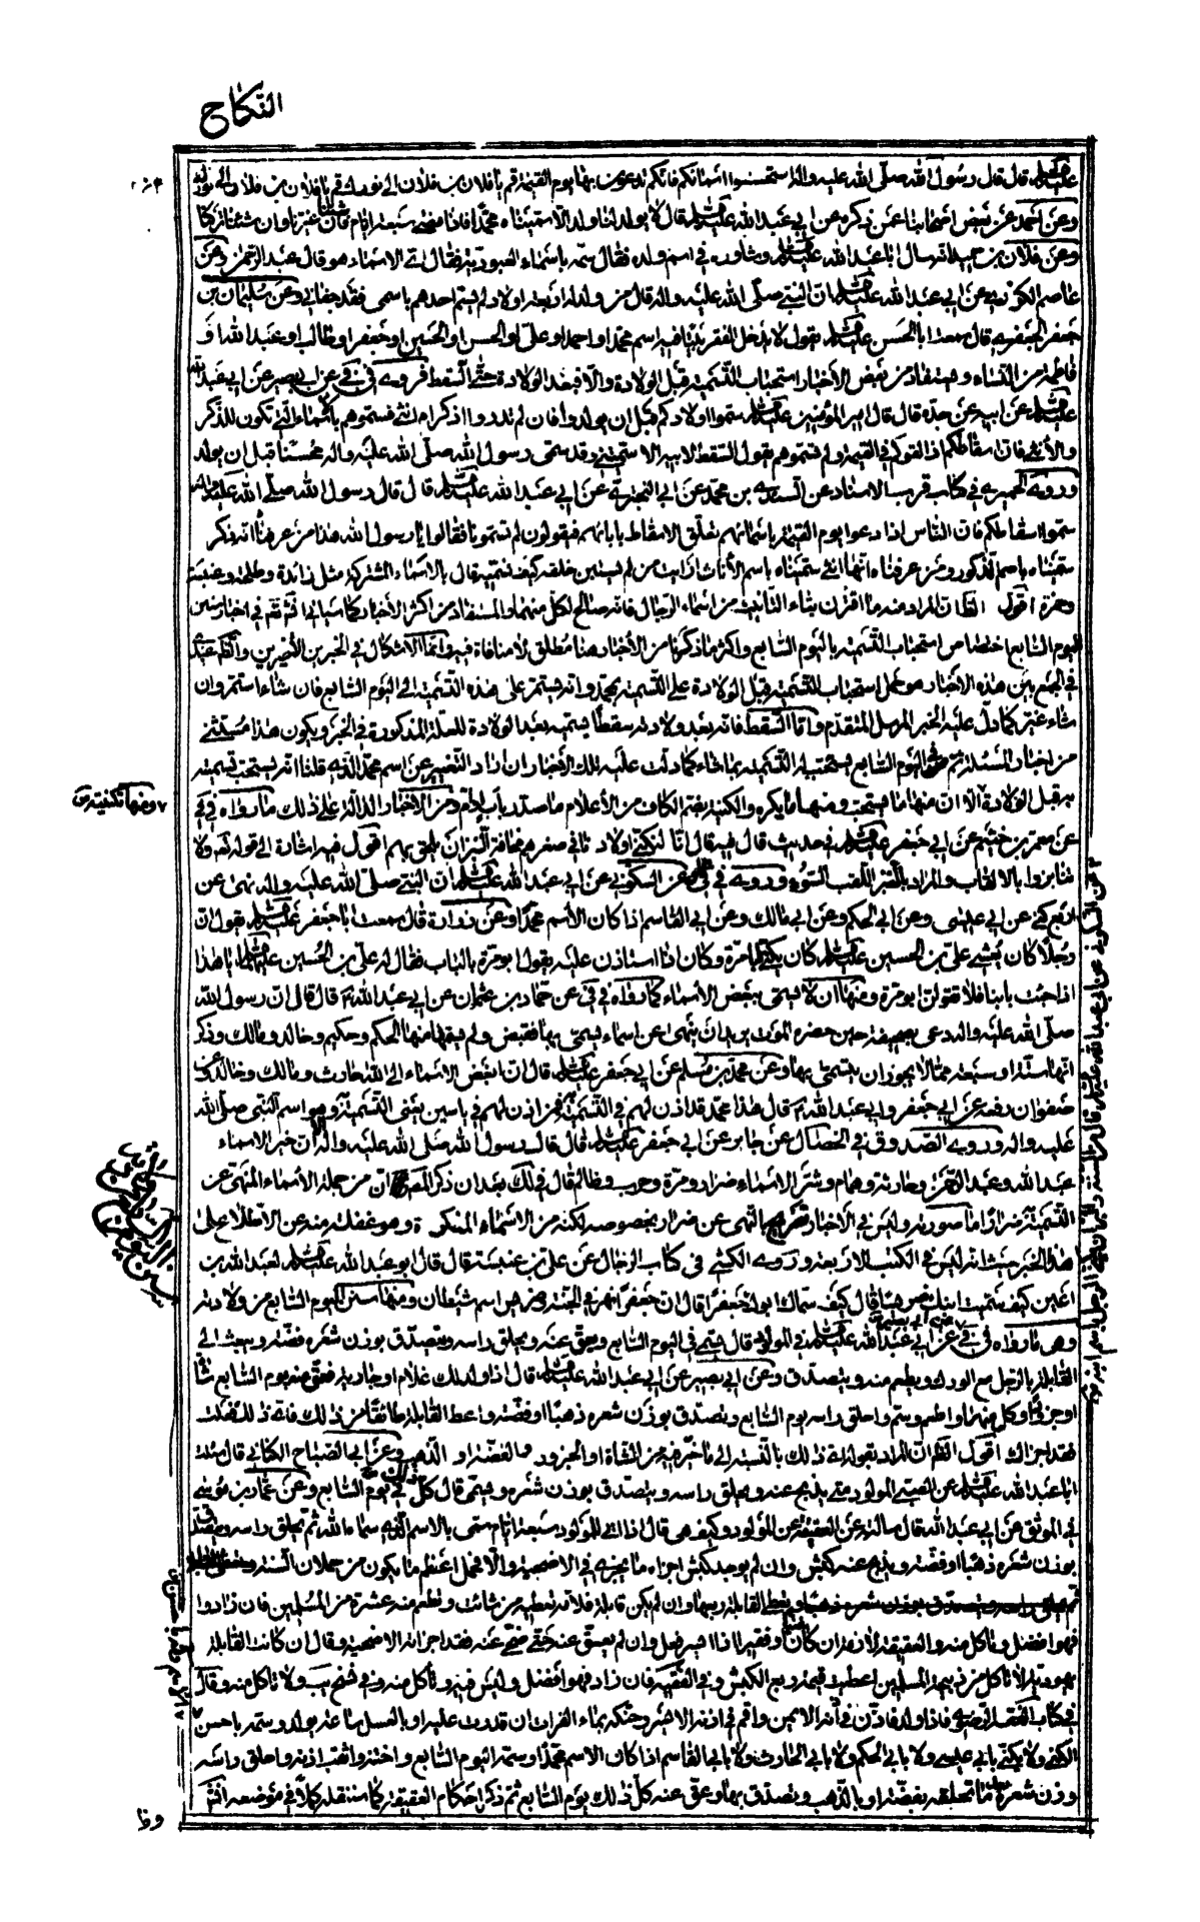 النكاح
عليه السلام قال قال رسول الله صلى الله عليه واله استحسنوا اسمائكم فانكم تدعون بها يوم القيمة قم يا فلان بن فلان الى نورك قم يا فلان بن فلان لا نور لك
وعن احمد عن بعض اصحابنا عمن ذكره عن ابي عبد الله عليه السلام قال لا يولد لنا ولد الا سميناه محمدا فاذا مضى سبعة ايام فان شئنا غيرنا وان شئنا تركنا
وعن فلان بن حميد انه سال ابا عبد الله عليه السلام وشاوره في اسم ولده فقال سمه باسماء العبودية فقال اي الاسماء هو قال عبد الرحمن وعن
عاصم الكوزي عن ابي عبد الله عليه السلام ان النبي صلى الله عليه واله قال من ولد له اربعة اولاد لم يسم احدهم باسمي فقد جفاني وعن سليمان بن
جعفر الجعفري قال سمعت ابا الحسن عليه السلام يقول لا يدخل الفقر بيتا فيه اسم محمد او احمد او علي او الحسن او الحسين او جعفر او طالب او عبد الله او
فاطمة من النساء ويستفاد من بعض الاخبار استحباب التسمية قبل الولادة والا فبعد الولادة حتى السقط فروى في في عن ابي بصير عن ابي عبد الله
عليه السلام عن ابيه عن جده قال قال امير المؤمنين عليه السلام سموا اولادكم قبل ان يولدوا فان لم تدروا اذكر ام انثى فسموهم بالاسماء التي تكون للذكر
والانثى فان اسقاطكم اذا لقوكم في القيمة ولم تسموهم يقول السقط لابيه الا سميتني وقد سمى رسول الله صلى الله عليه واله محسنا قبل ان يولد
وروى الحميري في كتاب قرب الاسناد عن السندي بن محمد عن ابي البختري عن ابي عبد الله عليه السلام قال قال رسول الله صلى الله عليه واله
سموا اسقاطكم فان الناس اذا دعوا يوم القيمة باسمائهم تعلق الاسقاط بابائهم فيقولون لم تسمونا فقالوا يا رسول الله هذا من عرفنا انه ذكر
سميناه باسم الذكور ومن عرفناه انها انثى سميناه باسم الأناث ارايت من لم يستبن خلقه كيف نسميه قال بالاسماء المشتركة مثل زائدة وطلحة وعنبسة
وحمزة اقول الظ ان المراد منه ما اقترن بتاء التانيث من اسماء الرجال فانه صالح لكل منهما والمستفاد من اكثر الأخبار كما سياتي انش تعم في اخبار سنن
اليوم السابع اختصاص استحباب التسمية باليوم السابع واكثر ما ذكرنا من الأخبار هنا مطلق لا منافاة فيه وانما الاشكال في الخبرين الأخيرين والظم عندي
في الجمع بين هذه الأخبار هو حمل استحباب التسمية قبل الولادة على التسمية بمحمد وانه يستمر على هذه التسمية الى اليوم السابع فان شاء استمر وان
شاء غير كما دل عليه الخبر المرسل المتقدم واما السقط فانه بعد ولادته سقطا يسميه بعد الولادة للعلة المذكورة في الخبر ويكون هذا مستثنى
من اخبار المسئلة ثم في اليوم السابع يستحب له التسمية بما شاء كما دلت عليه تلك الاخبار ان اراد التغيير عن اسم محمد الذي قلنا انه يستحب تسميته
به قبل الولادة الا ان منها ما يستحب ومنها ما يكره والكنية بضم الكاف من الأعلام ما صدر باب او ام ومن الاخبار الدالة على ذلك ما رواه في في
ومنها تكنيته
عن معمر بن خثيم عن ابي جعفر عليه السلام في حديث قال فيه قال انا لنكني اولادنا في صغرهم مخافة النبز ان يلحق بهم اقول فيه اشارة الى قوله تعالى ولا
تنابزوا بالالقاب والمراد بالنبز اللقب السوء وروى في في عن السكوني عن ابي عبد الله عليه السلام ان النبي صلى الله عليه واله نهى عن
اربع كنى عن ابي عيسى وعن ابي الحكم وعن ابي مالك وعن ابي القاسم اذا كان الأسم محمدا وعن زرارة قال سمعت ابا جعفر عليه السلام يقول ان
رجلا كان يغشى علي بن الحسين عليه السلام كان يكنى ابا مرة وكان اذا استاذن عليه يقول ابو مرة بالباب فقال له علي بن الحسين عليهما السلام يا هذا
اذا جئت بابنا فلا تقولن ابو مرة ومنها ان لا يسمى ببعض الأسماء كما رواه في في عن حماد بن عثمان عن ابي عبد الله ع قال قال ان رسول الله
صلى الله عليه واله دعى بصحيفة حين حضره الموت يريد ان ينهى عن اسماء يسمى بها فقبض ولم يسمها منها الحكم وحكيم وخالد ومالك وذكر
انها ستة او سبعة مما لا يجوز ان يتسمى بها وعن محمد بن مسلم عن ابي جعفر عليه السلام قال ان ابغض الاسماء الى الله حارث ومالك وخالد وعن
صفوان رفعه عن ابي جعفر وابي عبد الله ع قال هذا محمد قد اذن لهم في التسمية فمن اذن لهم في ياسين يعني التسمية وهو اسم النبي صلى الله
عليه واله وروى الصدوق في الخصال عن جابر عن ابي جعفر عليه السلام قال قال رسول الله صلى الله عليه واله الا ان خير الاسماء
عبد الله وعبد الرحمن وحارثة وهمام وشر الاسماء ضرار ومرة وحرب وظالم قال في لك بعد ان ذكر المص ان من جملة الأسماء المنهي عن
التسمية ضرارا ما صورته وليس في الأخبار تصريح بالنهي عن ضرار بخصوصه لكنه من الاسماء المنكرة وهو غفلة منه عن الاطلاع على
هذا الخبر حيث انه ليس في الكتب الاربعة وروى الكشي في كتاب الرجال عن علي بن عنبسة قال قال ابو عبد الله عليه السلام لعبد الله بن
اعين كيف سميت ابنك ضريسا قال كيف سماك ابوك جعفرا قال ان جعفرا نهر في الجنة وضريس اسم شيطان ومنها سنن اليوم السابع من ولادته
وهي ما رواه في في عن ابي بصير عن ابي عبد الله عليه السلام في المولود قال يسمى في اليوم السابع ويعق عنه ويحلق راسه ويتصدق بوزن شعره فضة ويبعث الى
القابلة بالرجل مع الورك ويطعم منه ويتصدق وعن ابي بصير عن ابي عبد الله عليه السلام قال اذا ولد لك غلام او جارية فعق عنه يوم السابع شاة
او جزورا وكل منها واطعم وسم واحلق راسه يوم السابع وتصدق بوزن شعره ذهبا او فضة واعط القابلة طائفا من ذلك فاي ذلك فعلت
فقد اجزاك اقول الظم ان المراد بقوله اي ذلك بالنسبة الى ما خير فيه من الشاة او الجزور والفضة او الذهب وعن ابي الصباح الكناني قال سئلت
ابا عبد الله عليه السلام عن الصبي المولود متى يذبح عنه ويحلق راسه ويتصدق بوزن شعره ويسمى قال كل ذلك في يوم السابع وعن عمار بن موسى
في الموثق عن ابي عبد الله قال سالته عن العقيقة عن المولود وكيف هي قال اذا اتى للمولود سبعة ايام سمى بالاسم الذي سماه الله ثم يحلق راسه ويتصدق
بوزن شعره ذهبا او فضة ويذبح عنه كبش وان لم يوجد كبش اجزاه ما يجزي في الاضحية والا فحمل اعظم ما يكون من حملان السنة
ويعطى القابلة ربعها وان لم يكن قابلة فلامه تعطيه من شائت وتطعم منه عشرة من المسلمين فان زادوا
فهو افضل وتاكل منه والعقيقة لازمة ان كان غنيا او فقيرا اذا ايسر فعل وان لم يعق عنه حتى ضحى عنه فقد اجزاته الاضحية وقال ان كانت القابلة
يهودية لا تاكل من ذبيحة المسلمين اعطيت قيمة ربع الكبش وفي الفقيه فان زاد فهو افضل وليس فيه وتاكل منه وفي نسخ يب ولا تاكل منه وقال
في كتاب الفقه الرضوي فاذا ولد فاذن في اذنه الايمن واقم في اذنه الايسر وحنكه بماء الفرات ان قدرت عليه او بالعسل ساعة يولد وسمه باحسن
الكنى ولا يكنى بابي عيسى ولا بابي الحكم ولا بابي الحارث ولا بابي القاسم اذا كان الاسم محمدا وسمه اليوم السابع واختنه واثقب اذنه واحلق راسه
وزن شعره بعد ما تحلقه بفضة او بالذهب وتصدق بها وعق عنه كل ذلك يوم السابع ثم ذكر احكام العقيقة كما سننقله كلا في موضعه انش
وظ